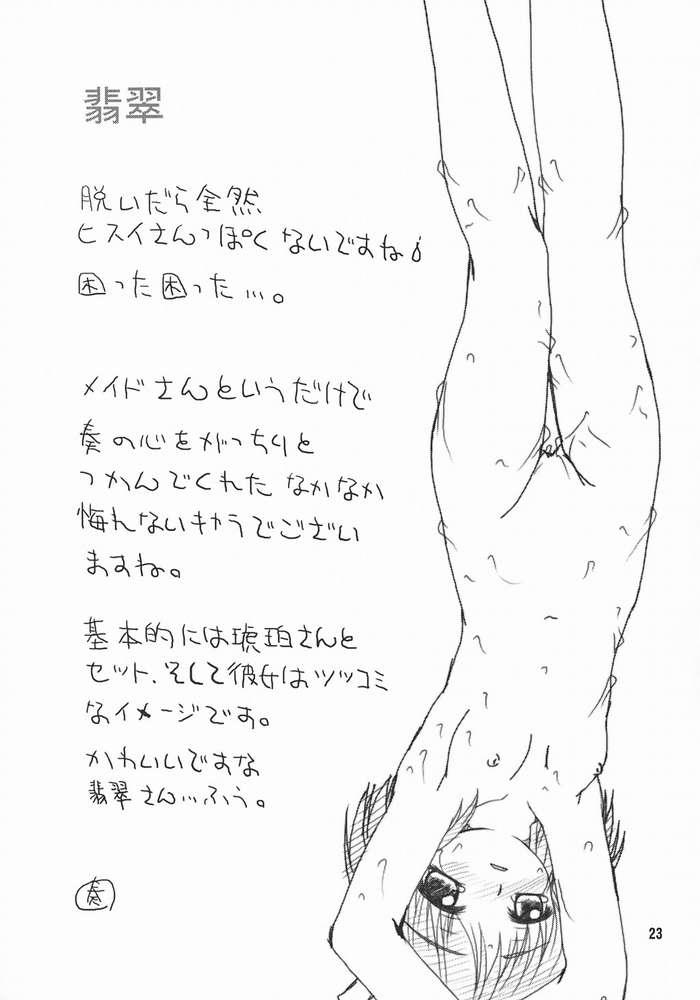 翡翠
脱いだら全然
ヒスイさんっぽくないですね
困った困った…。
メイドさんというだけで
奏の心をがっちりと
つかんでくれた なかなか
侮れないキャラでござい
ますね。
基本的には琥珀さんと
セット、そして彼女はツッコミ
なイメージです。
かわいいですな
翡翠さん…ふう。
奏
23